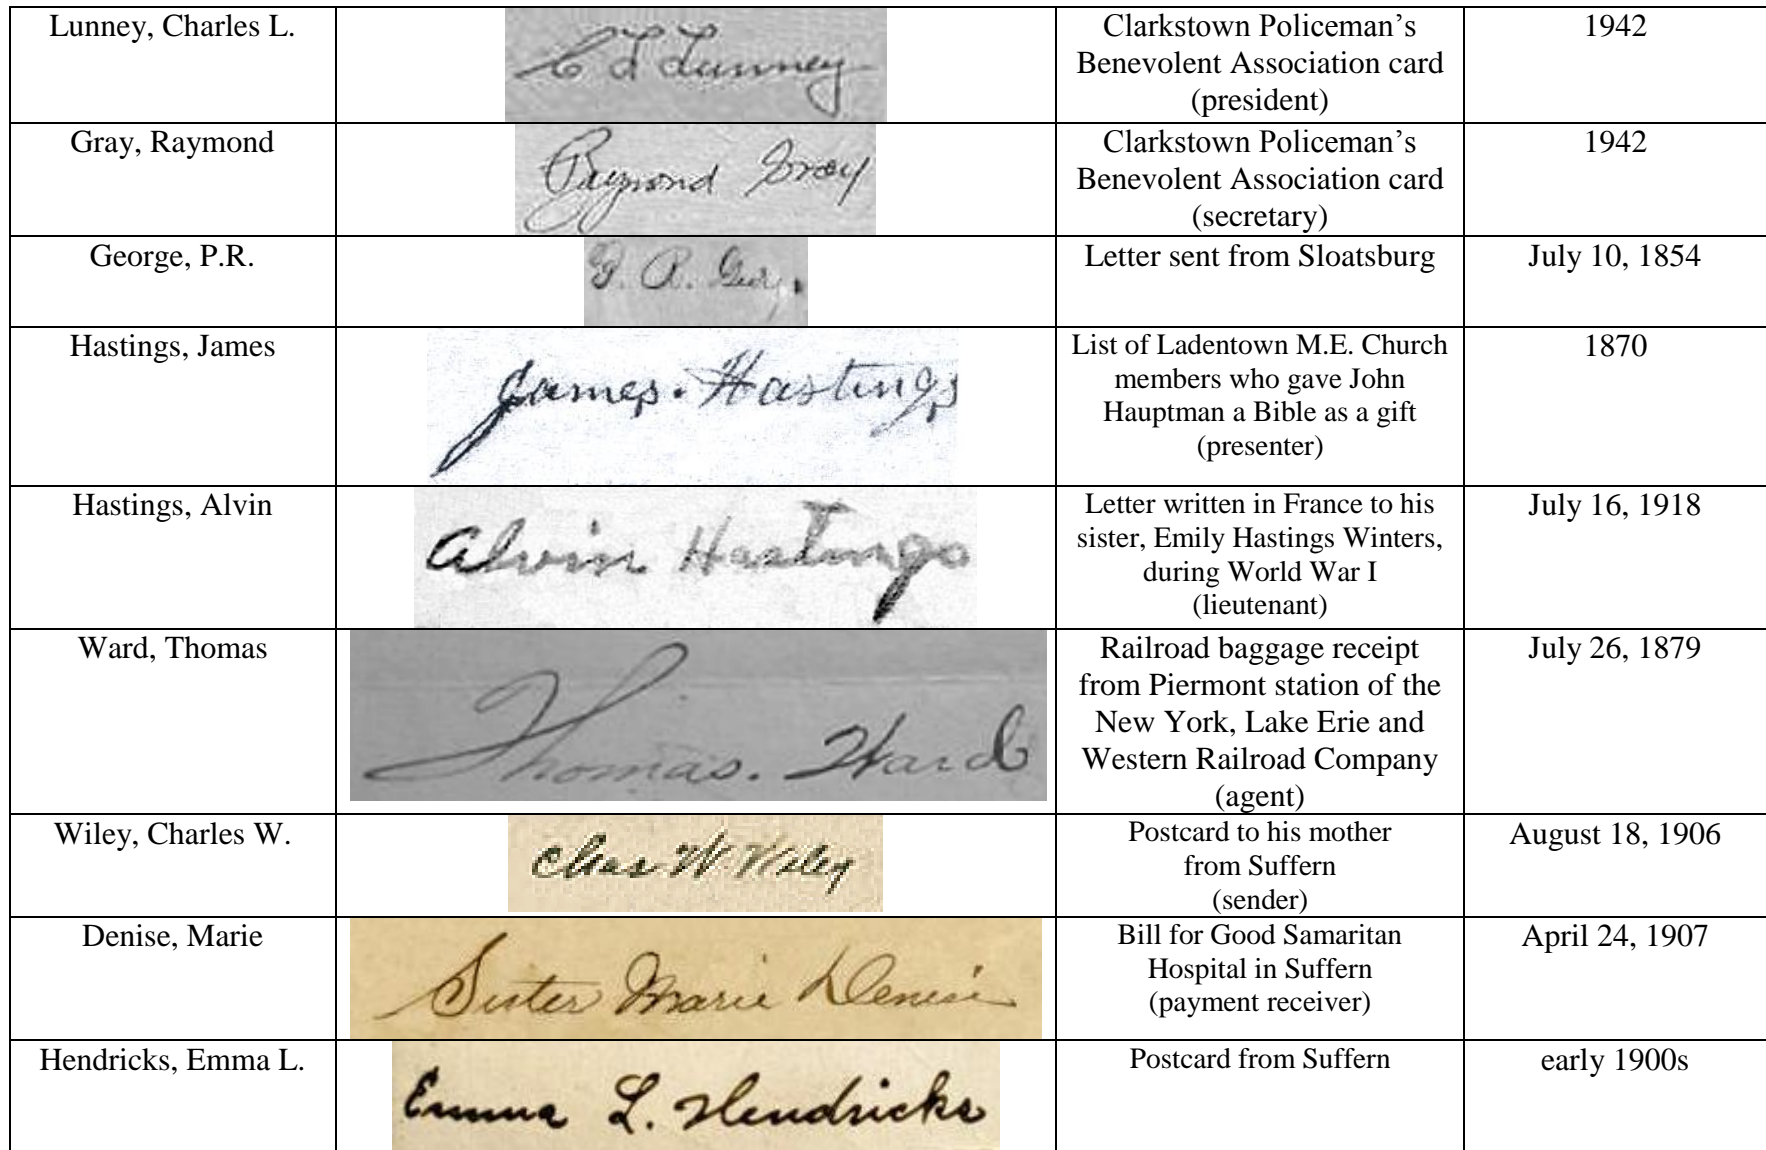 Lunney, Charles L.
C L Lunney
Clarkstown Policeman’s
Benevolent Association card
(president)
1942
Gray, Raymond
Raymond Gray
Clarkstown Policeman’s
Benevolent Association card
(secretary)
1942
George, P.R.
P. R. Geo
Letter sent from Sloatsburg
July 10, 1854
Hastings, James
James. Hastings
List of Ladentown M.E. Church
members who gave John
Hauptman a Bible as a gift
(presenter)
1870
Hastings, Alvin
Alvin Hastings
Letter written in France to his
sister, Emily Hastings Winters,
during World War I
(lieutenant)
July 16, 1918
Ward, Thomas
Thomas. Ward
Railroad baggage receipt
from Piermont station of the
New York, Lake Erie and
Western Railroad Company
(agent)
July 26, 1879
Wiley, Charles W.
Chas W. Wiley
Postcard to his mother
from Suffern
(sender)
August 18, 1906
Denise, Marie
Sister Marie Denise
Bill for Good Samaritan
Hospital in Suffern
(payment receiver)
April 24, 1907
Hendricks, Emma L.
Emma L. Hendricks
Postcard from Suffern
early 1900s